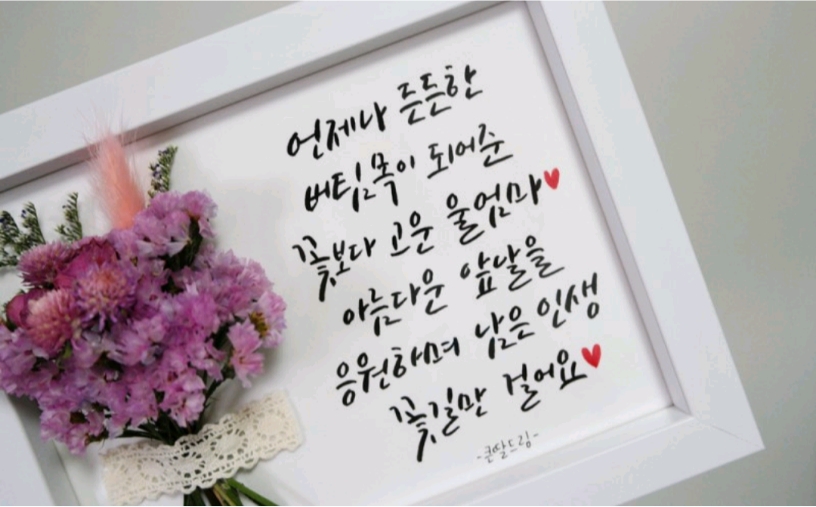 언제나 든든한
버팀목이 되어준
꽃보다 고운 울엄마
아름다운 앞날을
응원하며 남은 인생
꽃길만 걸어요
-큰딸드림-